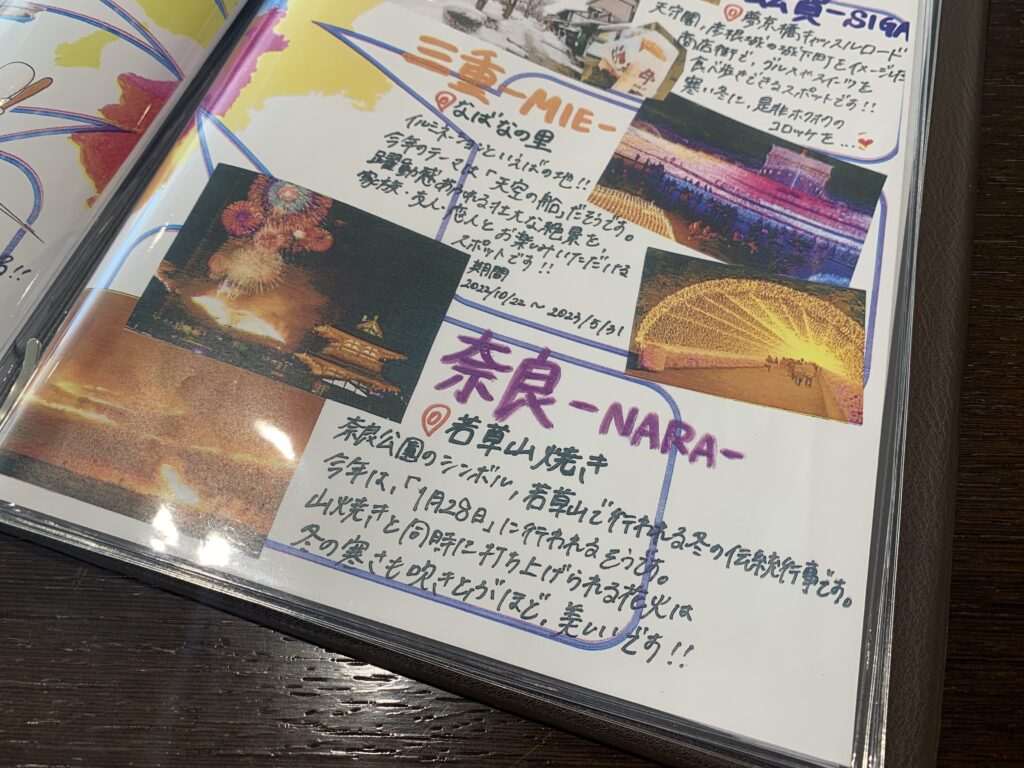 賀-SIGA
夢京橋キャッスルロード
天守閣,彦根城の城下町をイメージした
商店街で、グルメやスイーツを
食べ歩きできるスポットです!!
寒い冬に、是非ホクホクの
コロッケを...
三重-MIE-
なばなの里
イルミネーションといえばの地!!
今年のテーマは「天空の船」だそうです。
躍動感あふれる壮大な絶景を
家族・友人・恋人とお楽しみいただける
スポットです!!
期間
2022/10/22~2023/5/31
奈良-NARA-
若草山焼き
奈良公園のシンボル,若草山で行われる冬の伝統行事です。
今年は、「1月28日」に行われるそうです。
山焼きと同時に打ち上げられる花火は
冬の寒さも吹きとぶほど、美しいです!!
!!